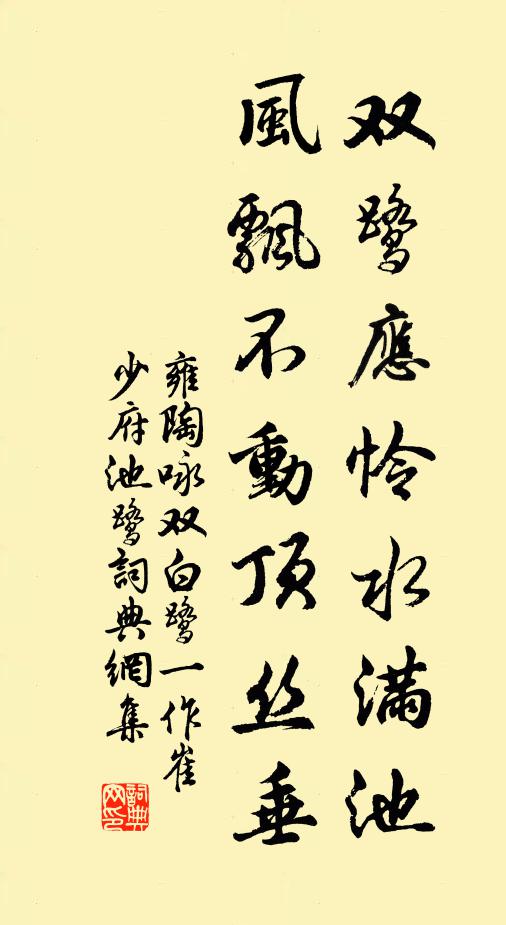 双鹭應怜水满池
風飘不動顶丝垂
雍陶咏双白鹭一作崔
少府池鹭詞典網集
詞典网印